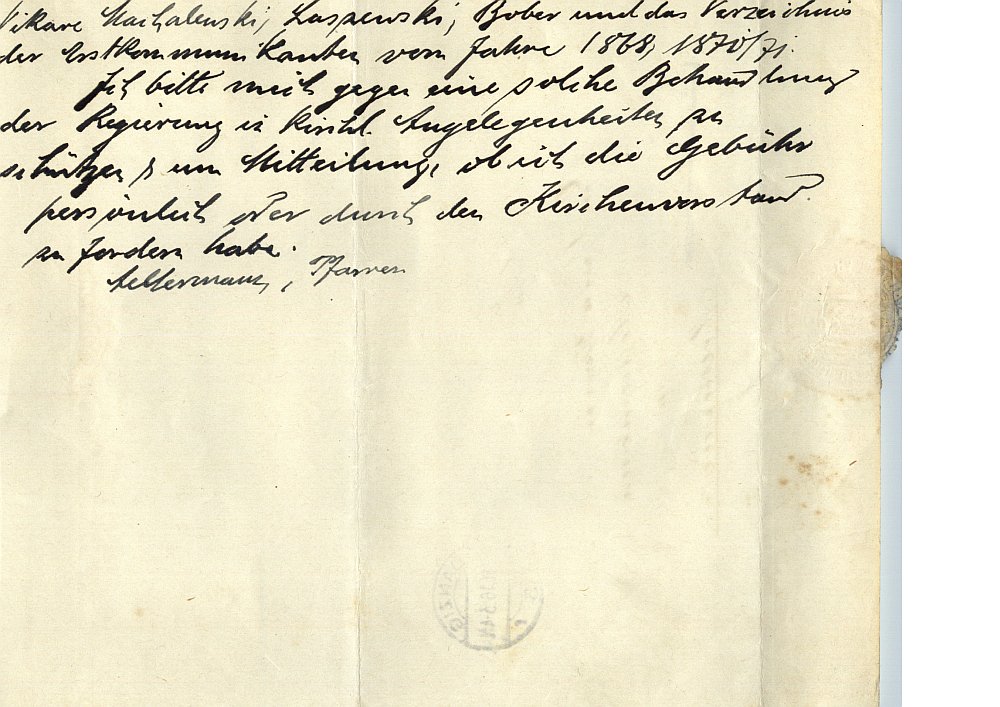 Vikare Machalewski, Laszewski, Bober und das Verzeichnis
der Erstkommunikanten vom Jahre 1868, 1870/71.
Ich bitte mich gegen eine solche Behandlung
der Regierung in kirchl. Angelegenheiten zu
schützen & um Mitteilung, ob ich die Gebühr
persönlich oder durch den Kirchenvorstand
zu fordern habe.
Pfarrer